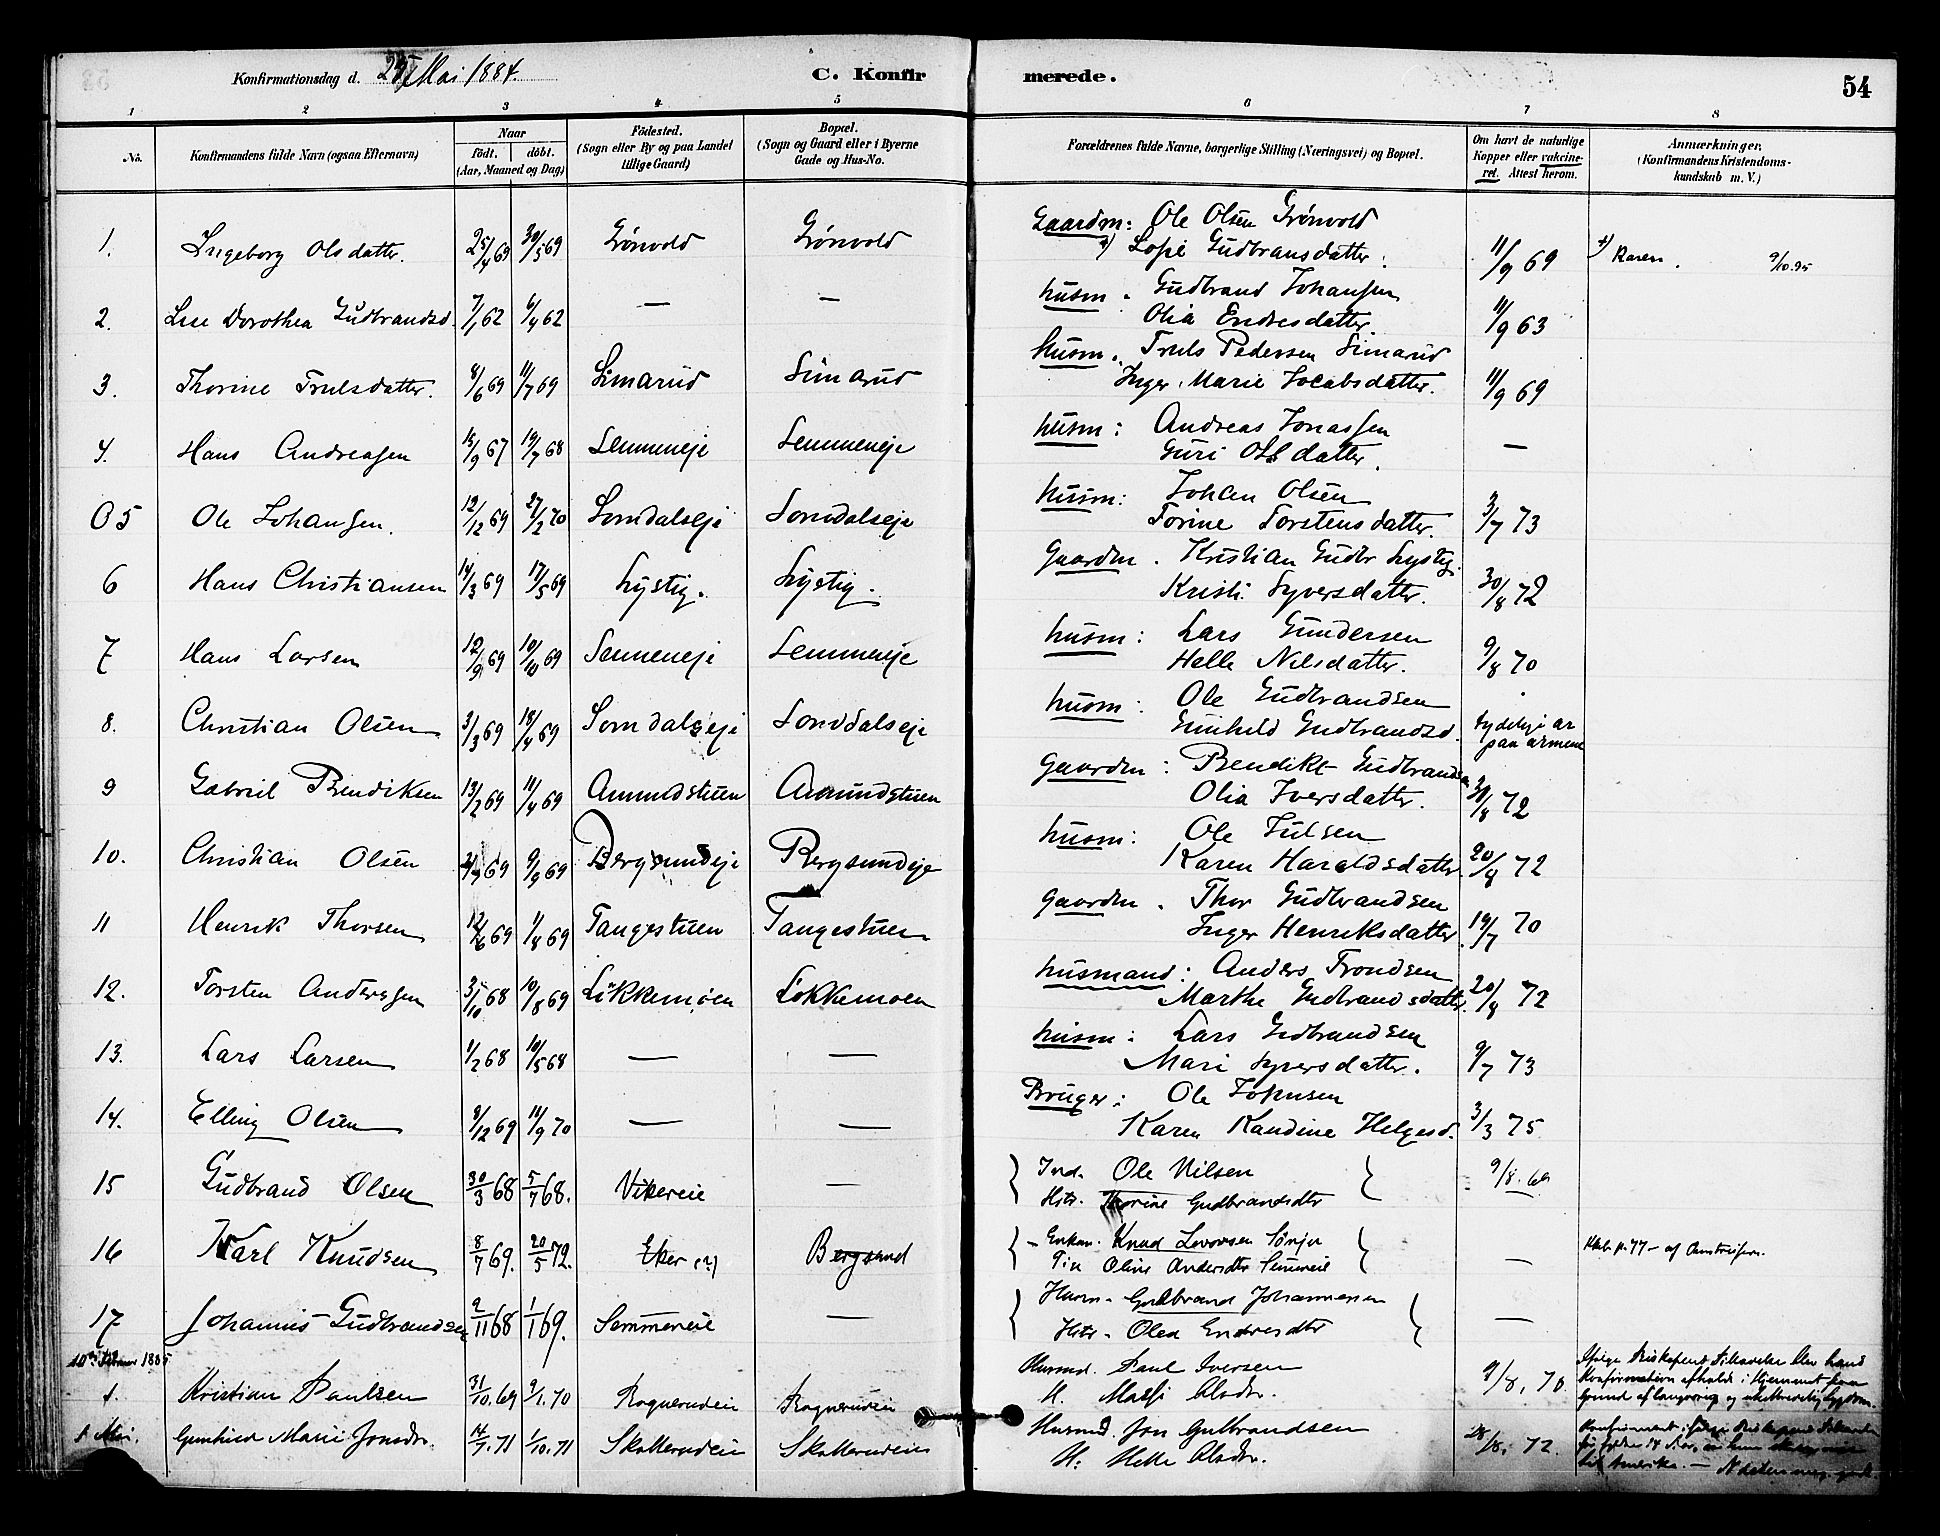 Konfirmationsdag d. 25 Mai 1884.
C. Konfirmerede.
54
1 2 3 4 5 6 7 8
No.
Konfirmandens fulde Navn (ogsaa Efternavn)
Naar
födt. döbt.
(Aar, Maaned og Dag)
Födested.
(Sogn eller By og paa Landet
tillige Gaard)
Bopæl.
(Sogn og Gaard eller i Byerne
Gade og Hus-No.
Forældrenes fulde Navne, borgerlige Stilling (Næringsvei) og Bopæl.
Om havt de naturlige
Kopper eller vakcine-
ret. Attest herom.
Anmærkninger.
(Konfirmandens Kristendoms-
kundskab m. V.)
1. Ingeborg Olsdatter. 25/4 69 30/5 69 Grönvold Grönvold Gaardm: Ole Olsen Grönvold
x) Sofie Gudbransdatter. 11/9 69 x) Karen. 9/10.95
2. Lise Dorothea Gudbrandsd. 7/1 62 6/4 62 — — husm. Gudbrand Johansen
Olia Endresdatter. 11/9 63
3. Thorine Trulsdatter. 8/6 69 11/7 69 Simarud Simarud husm. Truls Pedersen Simarud
Inger Marie Jocabsdatter. 11/9 69
4. Hans Andreasen 15/9 67 19/7 68 Semmeneje Semmeneje husm: Andreas Jonassen
Guri Olsdatter. —
05 Ole Johansen. 12/12 69 27/2 70 Somdalseje Somdalseje husm: Johan Olsen
Torine Torstensdatter. 3/7 73
6 Hans Christiansen 14/3 69 17/5 69 Lystig. Lystig. Gaardm. Kristian Gudbr Lystig.
Kristi Syversdatter. 30/8 72
7 Hans Larsen 12/9 69 10/10 69 Semmeneje Semmeneje husm: Lars Gundersen
Helle Nilsdatter. 9/8 70
8. Christian Olsen 3/3 69 18/4 69 Somdalseje Somdalseje husm: Ole Gudbrandsen
Gunhild Gudbrandsd. tydelige ar
paa armene
9 Gabriel Bendiksen 13/2 69 11/4 69 Amundstuen Amundstuen Gaardm: Bendikt Gudbrandsen
Olia Iversdatter. 30/8 72
10. Christian Olsen 69 9/9 69 Bergsundeje Bergsundeje husm: Ole Julsen
Karen Haraldsdatter. 20/8 72
11 Henrik Thorsen 12/6 69 1/8 69 Tangestuen Tangestuen Gaardm. Thor Gudbrandsen
Inger Henriksdatter. 19/7 70
12. Torsten Andersen 3/10 68 10/8 69 Lökkemoen Lökkemoen husmand: Anders Trondsen
Marthe Gudbrandsdatter. 20/8 72
13. Lars Larsen 1/2 68 10/5 68 — — husm: Lars Gudbrandsen
Mari Syversdatter. 9/7 73
14. Elling Olsen 8/12 69 11/9 70 — — Bruger: Ole Johnsen
Karen Kandine Helgesd. 3/3 75
15 Gudbrand Olsen 30/3 68 5/7 68. Vikereie — Ind. Ole Nilsen
Hstr. Thorine Gudbrandsdtr 9/8.69
16 Karl Knudsen 8/7 69. 20/5 72. Eker (?) Bergsund Enkem. Knud
Pige Oline Andersdtr — Kkb. p. 77 - af
17 Johannes Gudbrandsen 2/11 68 1/1 69. Semmeneie — Husm. Gudbrand Johannesen
Hstr. Olea Endresdtr —
10de Februar 1885
1. Kristian Paulsen 31/10.69 9/1.70 Rognerudeie Rognerudeie Husmd. Paul Iversen
H. Olsdtr. 9/8.70 Ifølge Biskopens Tilladelse blev hans
Konfirmation afholdt i Hjemmet paa
Grund af langvarig og Sygdom.
1 Mai. Gunhild Marie Jonsdtr. 14/7.71 1/10.71 Skollerudeie Skollerudeie Husmd. Jon Gulbrandsen
H. Helle Olsdtr. 28/8.72. Konfirmeret ifølge Biskopens Tilladelse
før fyldte 14 Aar, da hun
til Amerika. —